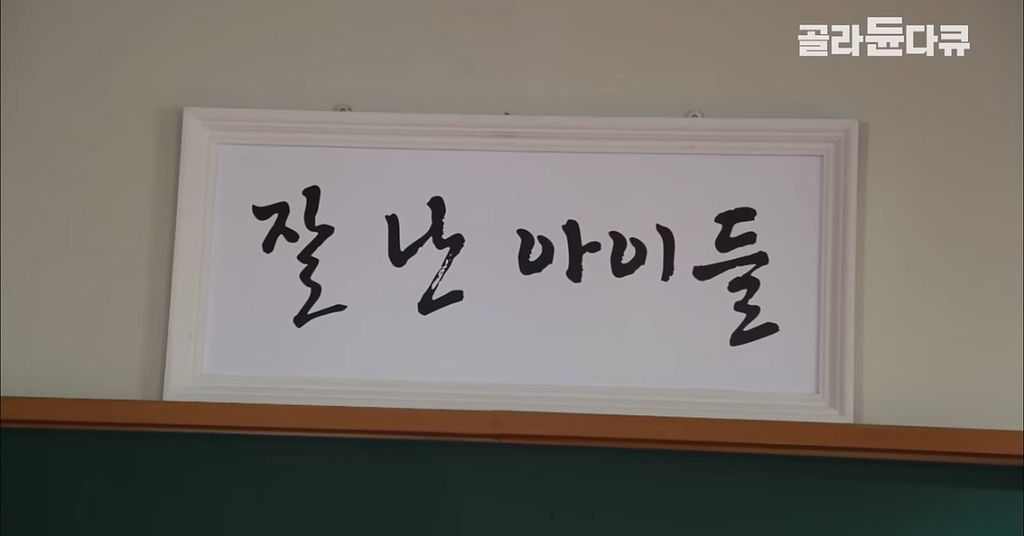 골라듄다큐
잘 난 아이들